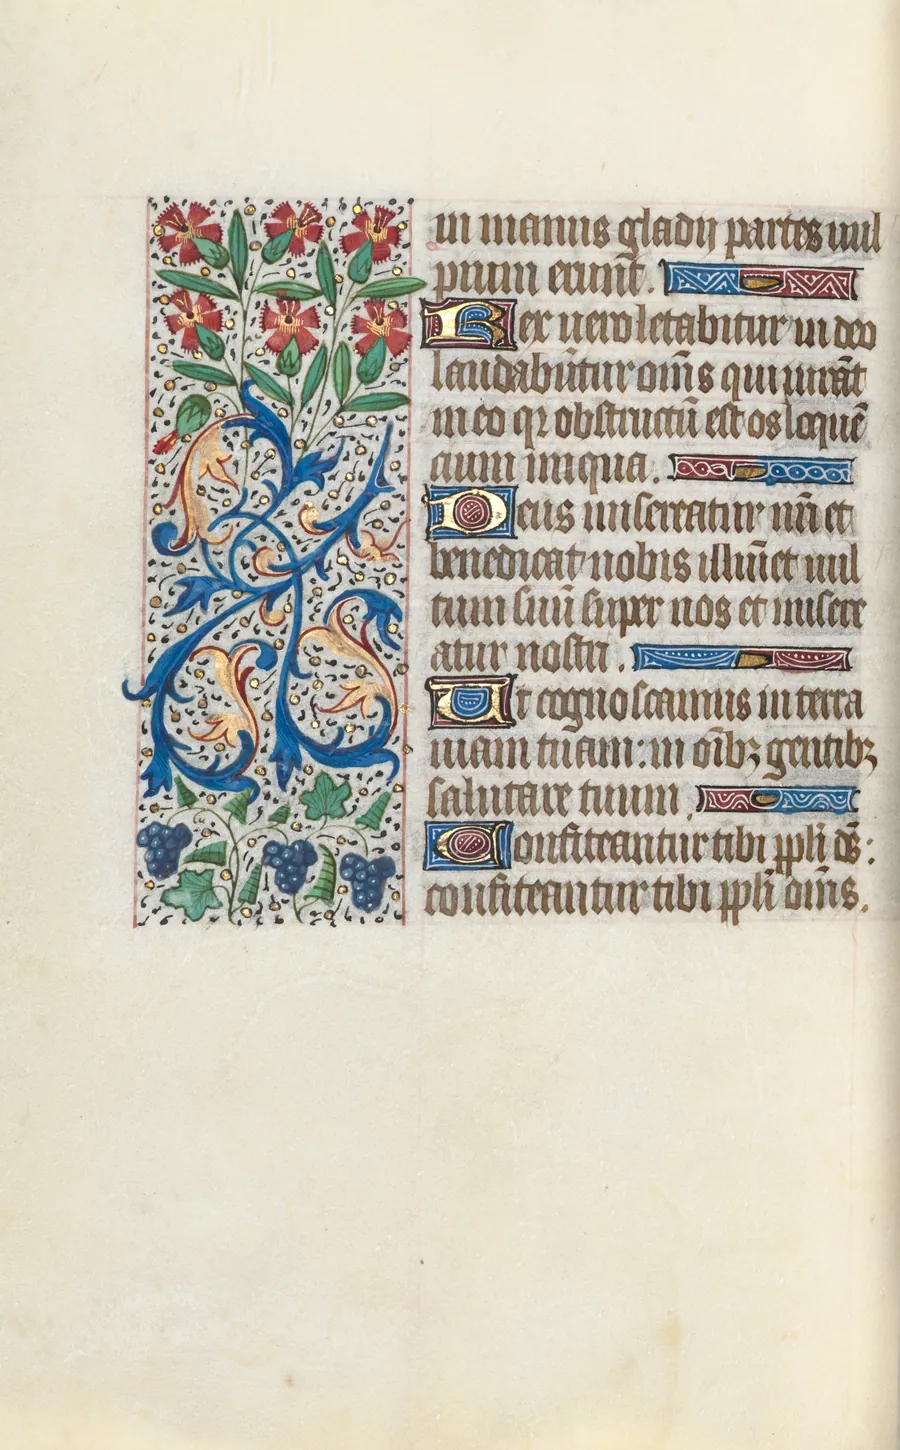 in manus gladij partes vul
pium erunt̄.
Rex vero letabitur in deo
laudabūtur om̄s qui iurāt
in eo qr obstructū est os loquē
cium iniqua.
Deus miserratur nr̄i et
benedicat nobis illūiet vul
tum suū super nos et misere
atur nostri.
Vt cognoscamus in terra
uiam tuam: in oībꝫ gentibꝫ
salutare tuum.
Confiteantur tibi ppli ds̄:
confiteantur tibi ppli om̄s.